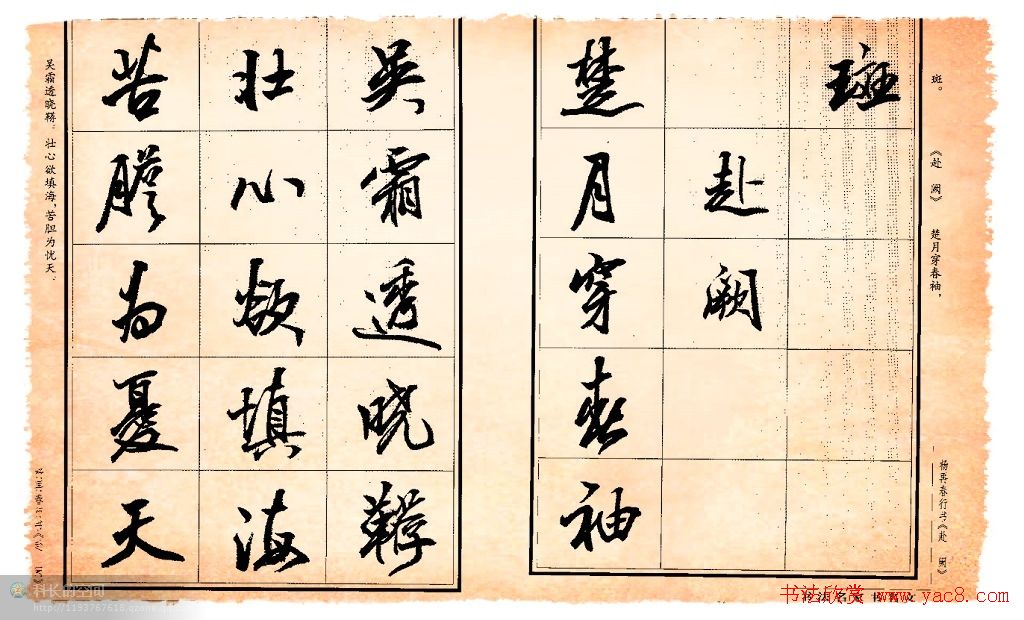 斑。 《赴 阙》 楚月穿春袖，
杨再春行书《赴 阙》
斑
赴闕
楚月穿春袖
吳霜透晓鞯
壮心欲填海
苦膽为憂天
吴霜透晓鞯。壮心欲填海，苦胆为忧天。
科长的空间
书法欣赏 www.yac8.com